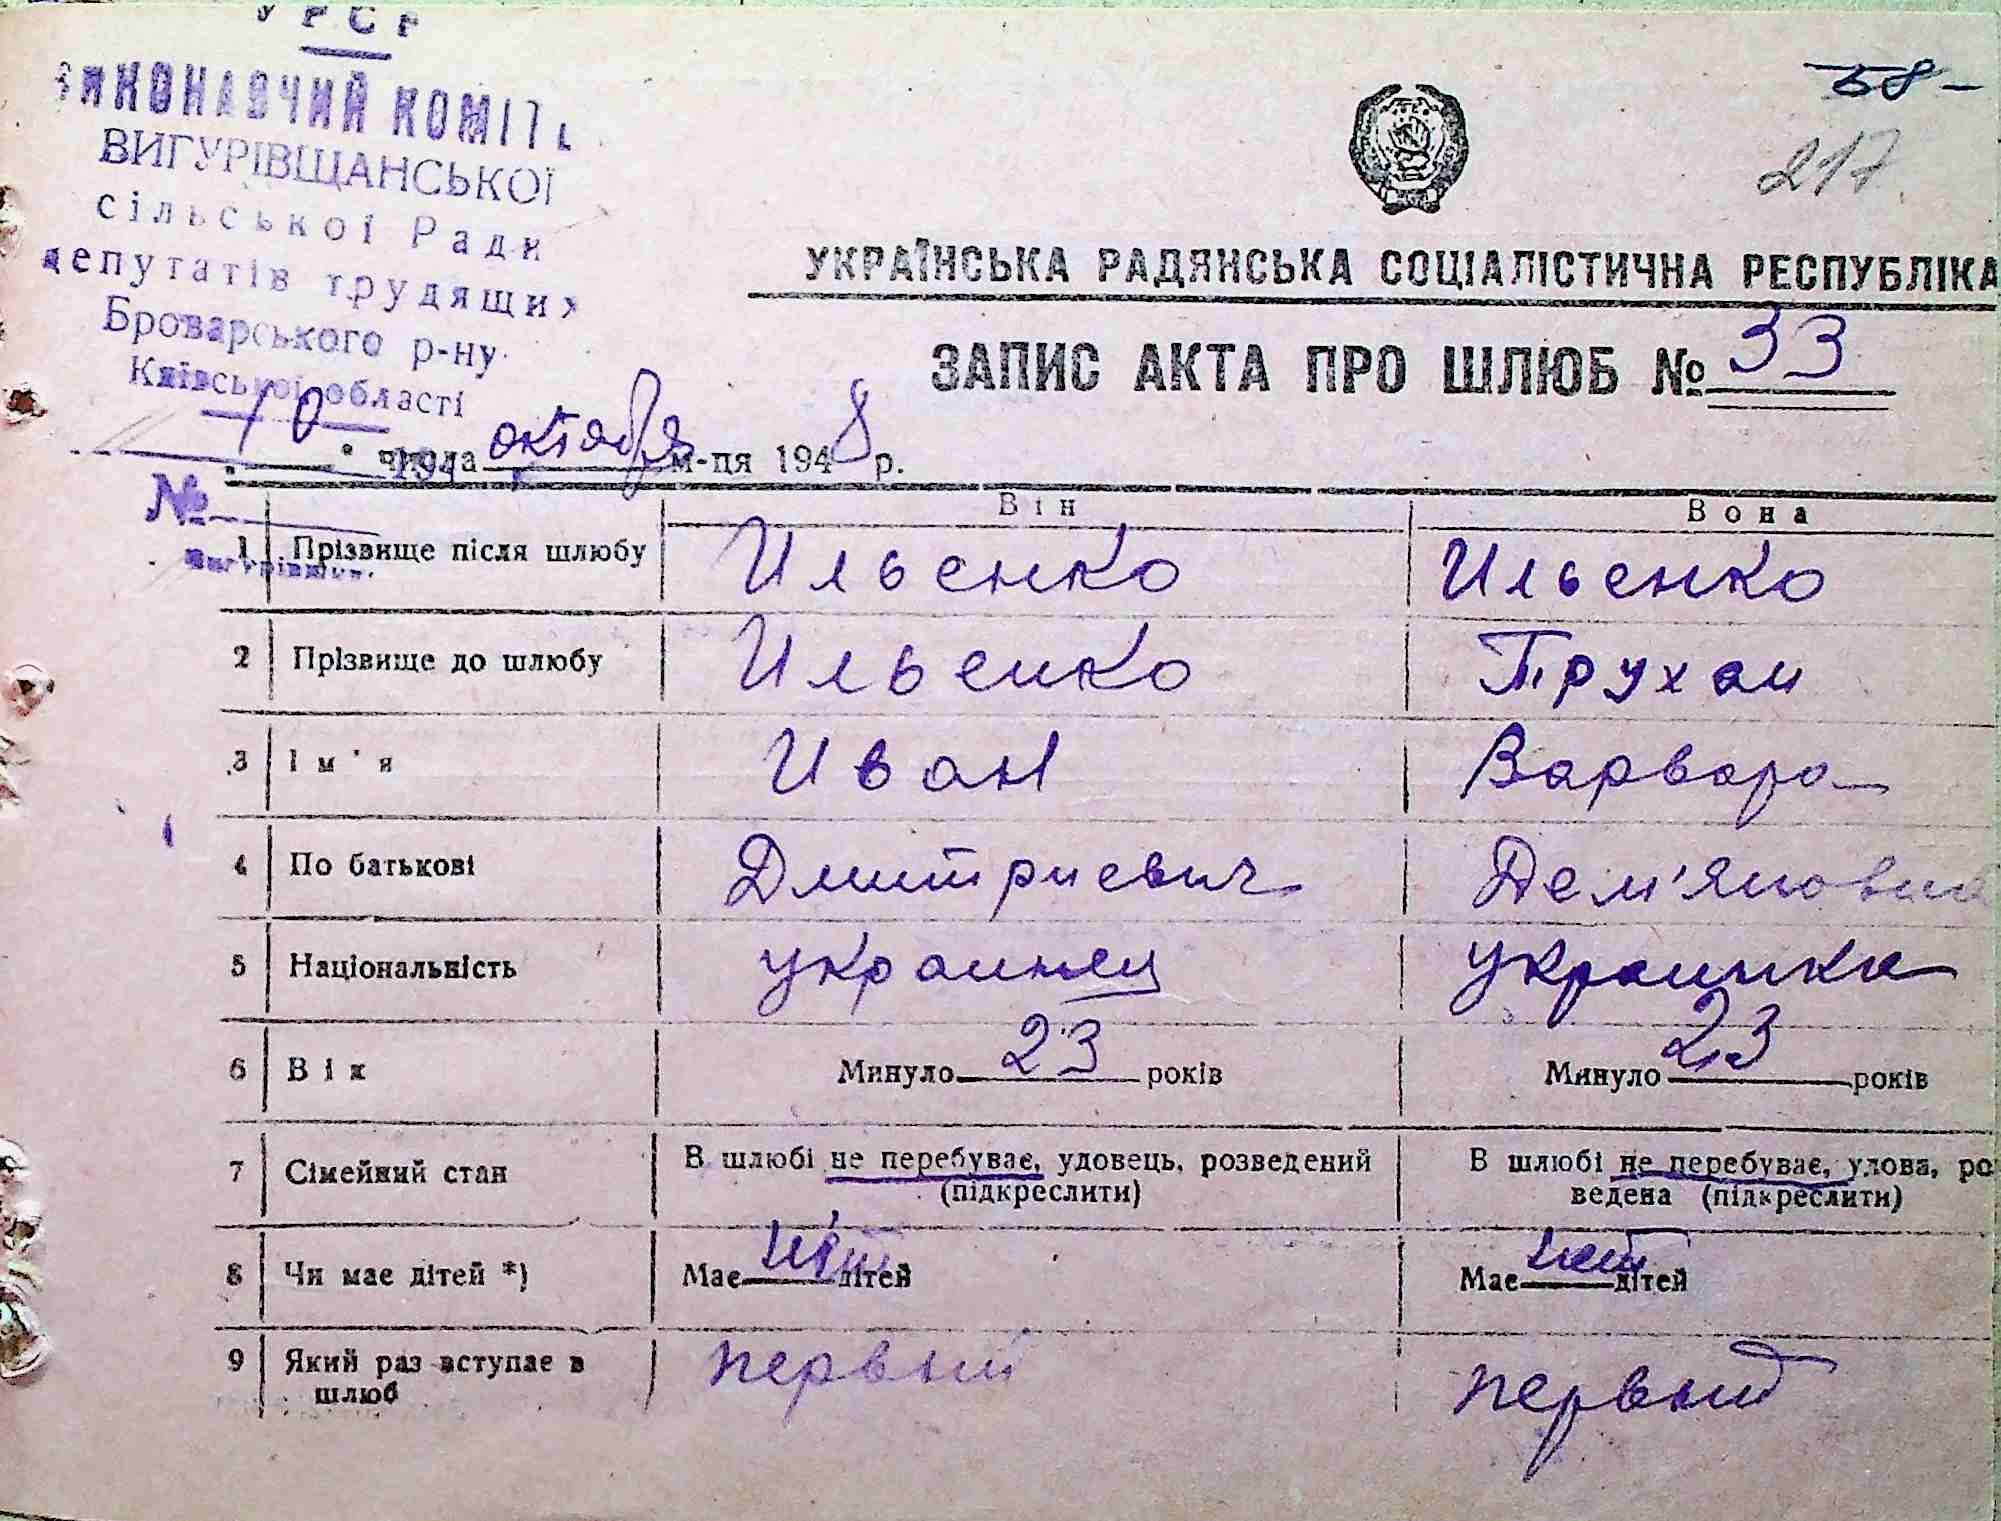 УРСР
ВИКОНАВЧИЙ КОМІТЕ
ВИГУРІВЩАНСЬКОЇ
сільської Ради
депутатів трудящих
Броварського р-ну
Київської області
58-
217
УКРАЇНСЬКА РАДЯНСЬКА СОЦІАЛІСТИЧНА РЕСПУБЛІКА
ЗАПИС АКТА ПРО ШЛЮБ № 33
10 числа октября м-ця 1948 р.
№
Він Вона
1 Прізвище після шлюбу Ильенко Ильенко
2 Прізвище до шлюбу Ильенко Трухан
3 Ім'я Иван Варвара
4 По батькові Дмитриевич Дем'яновна
5 Національність украинец украинка
6 Вік Минуло 23 років Минуло 23 років
7 Сімейний стан В шлюбі не перебуває, удовець, розведений В шлюбі не перебуває, удова, ро
(підкреслити) ведена (підкреслити)
8 Чи має дітей *) Має нет дітей Має нет дітей
9 Який раз вступає в первый первый
шлюб